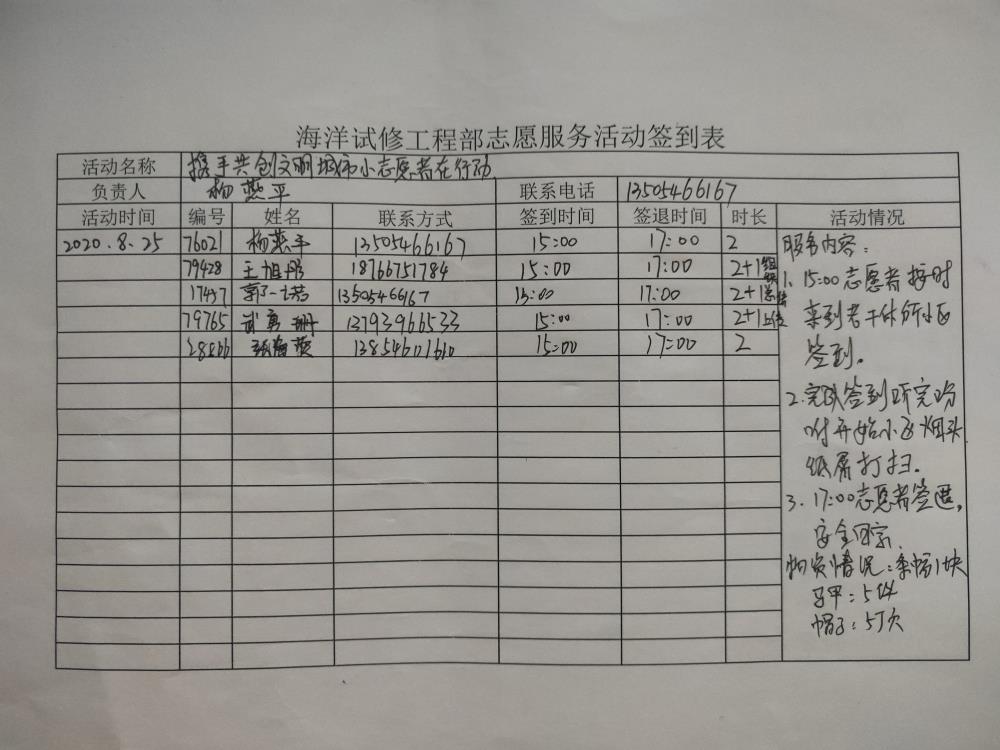 海洋试修工程部志愿服务活动签到表
活动名称 携手共创文明城市小志愿者在行动
负责人 杨燕平 联系电话 13505466167
活动时间 编号 姓名 联系方式 签到时间 签退时间 时长 活动情况
2020.8.25 76021 杨燕平 13505466167 15:00 17:00 2
79428 王旭彤 18766751784 15:00 17:00 2+1组织
17437 郭一诺 13505466167 15:00 17:00 2+1
79765 武勇珊 13793966533 15:00 17:00 2+1上传
28866 张海英 13854601610 15:00 17:00 2
服务内容:
1、15:00志愿者按时
来到若干休所小区
签到。
2.完队签到听完吩
咐开始小区烟头
纸屑打扫.
3、17:00志愿者签退,
安全回家.
物资情况:条幅1块
马甲:5件
帽子:5顶